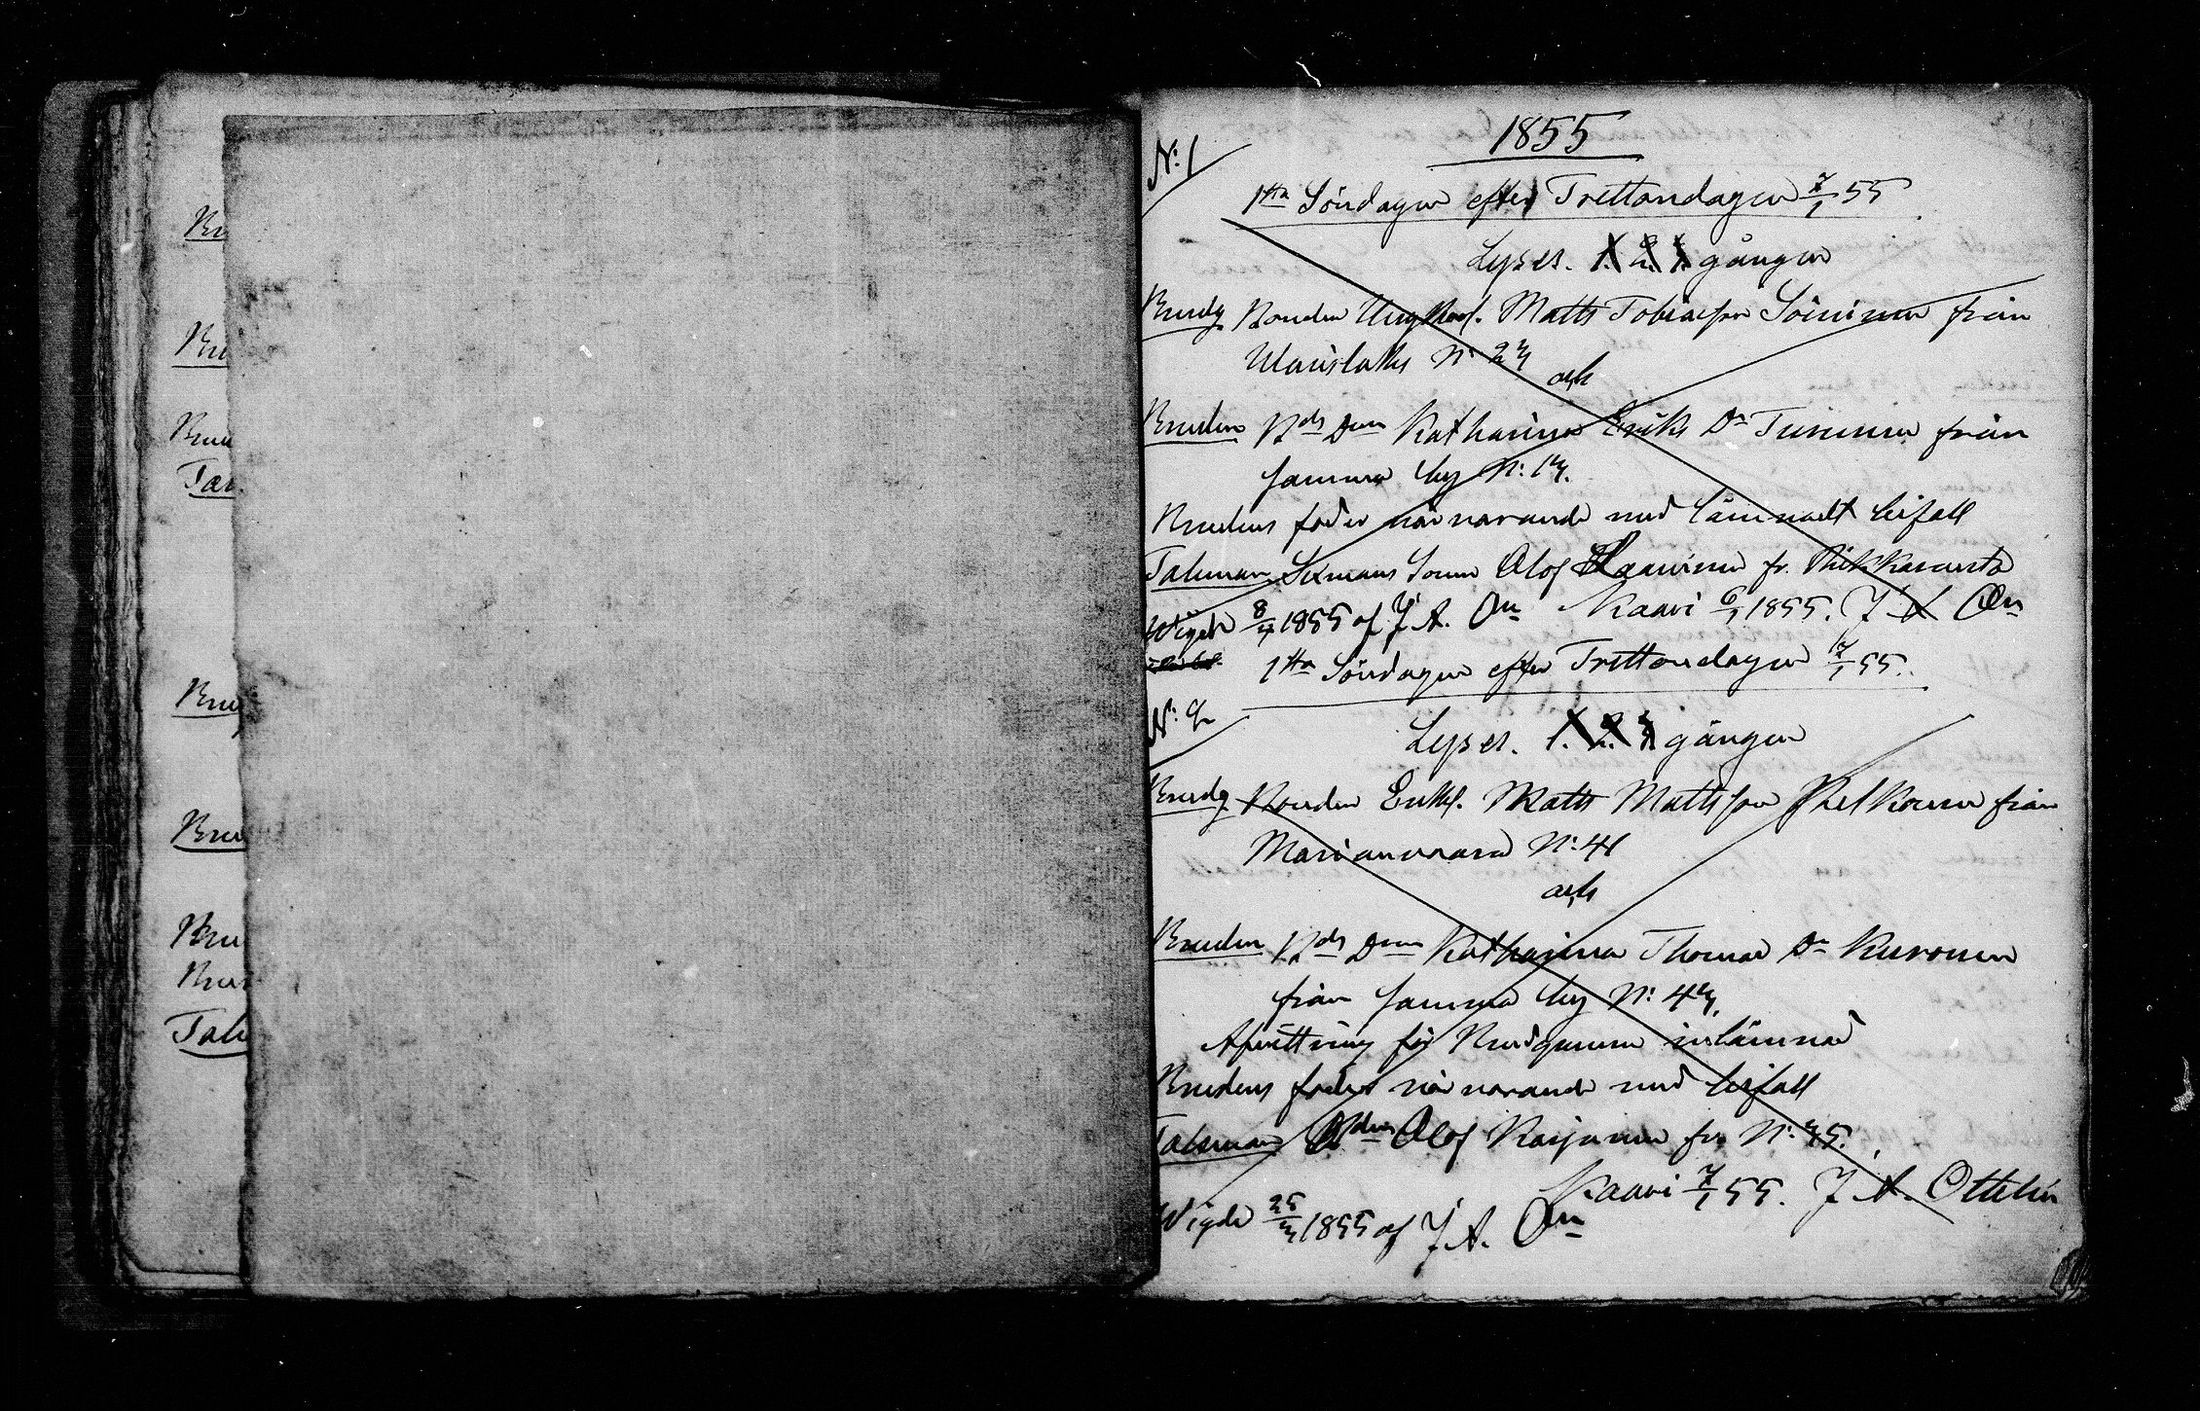 Bru
Bru
Bru
Tal
Brug
Bru
Bru
Bru
Tals
1855
N:1
1sta Söndagen efter Trettondagen 7/1 55
Lyses. 1. 2. 3. gången
Brudg. Bonden Ungkarl. Matts Tobiasson Soininen från
N: 23
och
Bruden Bds Don Katharina Eriks Dr Turunen från
samma by N: 13.
Brudens fader närvarande med lämnadt bifall
Talsman Sexmans Sonen Olof fr. Rikkaranta
Wigde 8/4 1855 af J. A. On Kaavi 6/1 1855. J A On
1sta Söndagen efter Trettondagen 7/1 55.
N: 2
Lyses. 1. 2. 3. gången
Brudg Bonden Enkl. Matts Mattsson Pelkonen från
Marianvaara N: 41
och
Bruden Bds Don Katharina Thomas Dr Kuronen
från samma by N: 43.
Afvittring för Brudgummen inlämnad
Brudens fader närvarande med bifall
Talsman Bdn Olof Karjunen fr N: 35.
Kaavi 7/1 55. J. A. Ottelin
Wigde 25/3 1855 af J. A. On